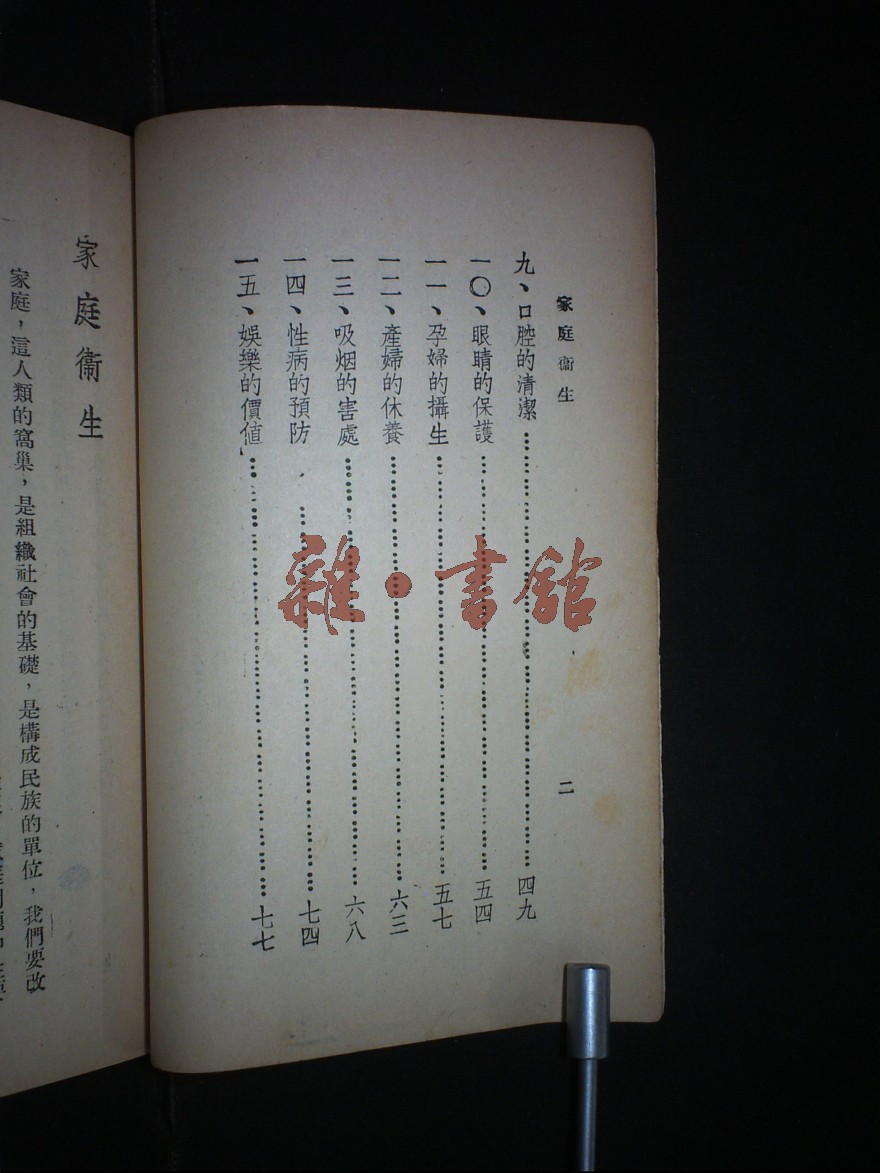 家庭衞生
二
九、口腔的清潔……四九
一〇、眼睛的保護……五四
一一、孕婦的攝生……五七
一二、產婦的休養……六三
一三、吸烟的害處……六八
一四、性病的預防……七四
一五、娛樂的價值……七七
雜·書館
家庭衞生
家庭，這人類的窩巢，是組織社會的基礎，是構成民族的單位，我們要改